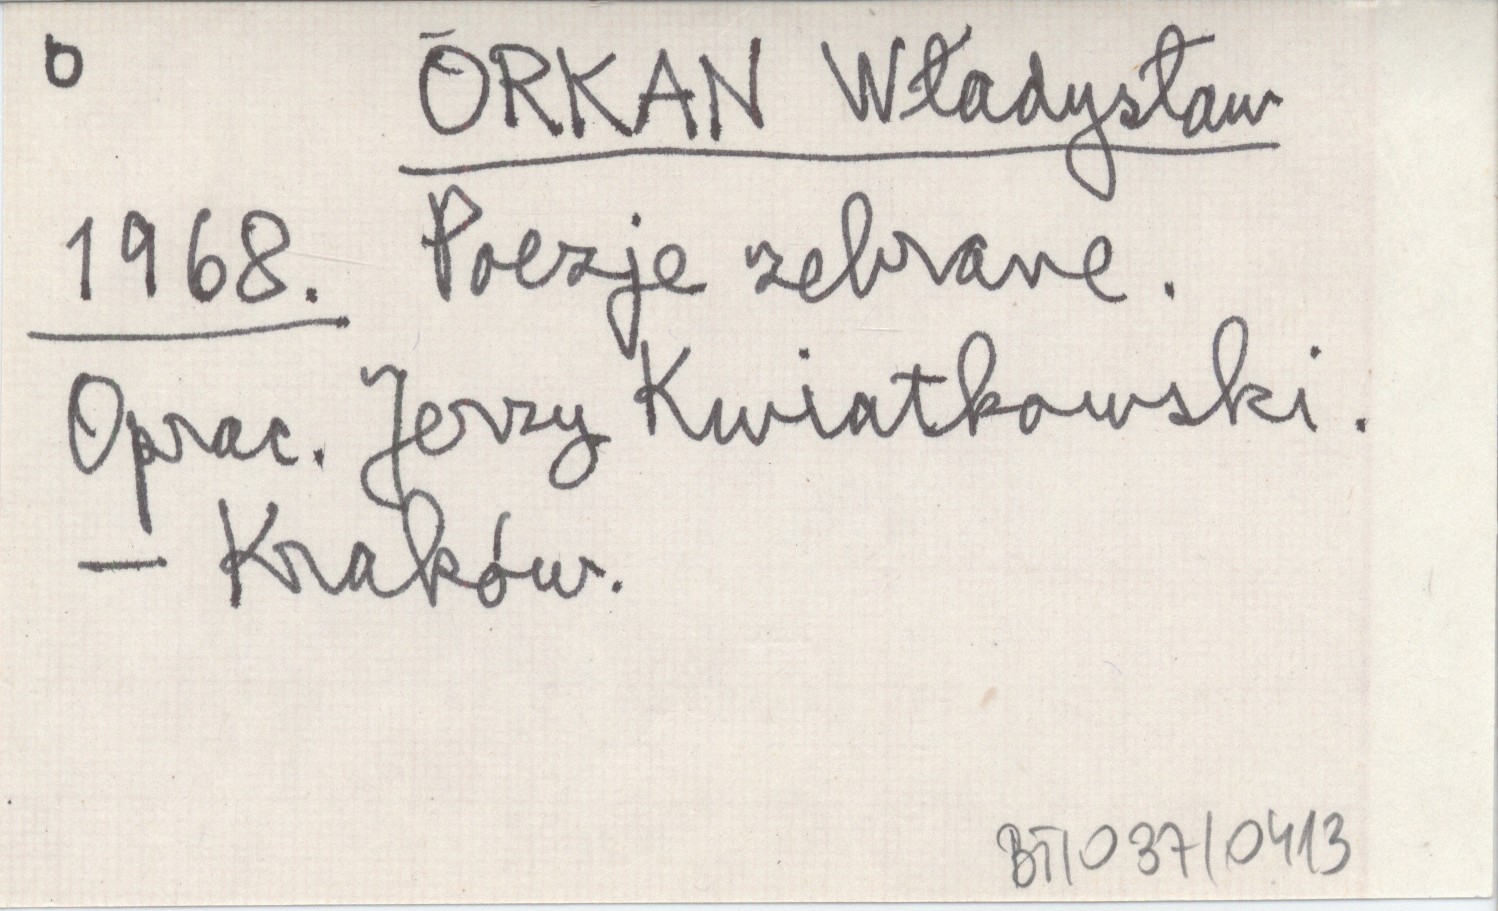 O ORKAN Władysław
1968. Poezje zebrane.
Oprac. Jerzy Kwiatkowski.
— Kraków.
BT/037/0413